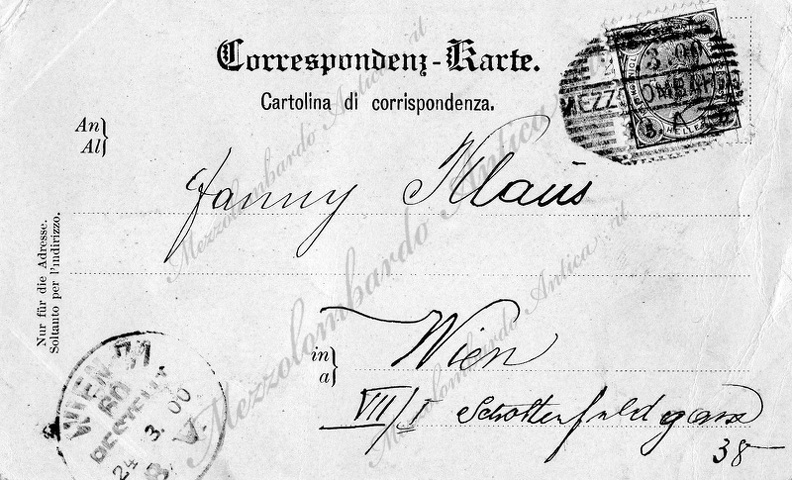 Correspondenz-Karte.
Cartolina di corrispondenza.
3.00
MEZZ OMBARD
5 HELLER
An
Al
Fanny Klaus
Nur für die Adresse.
Soltanto per l'indirizzo.
in
a
Wien
VII/I Schottenfeldgasse
38
WIEN
BESTELLT
24 3. 00
Mezzolombardo Antica .it
Mezzolombardo Antica .it
Mezzolombardo Antica .it